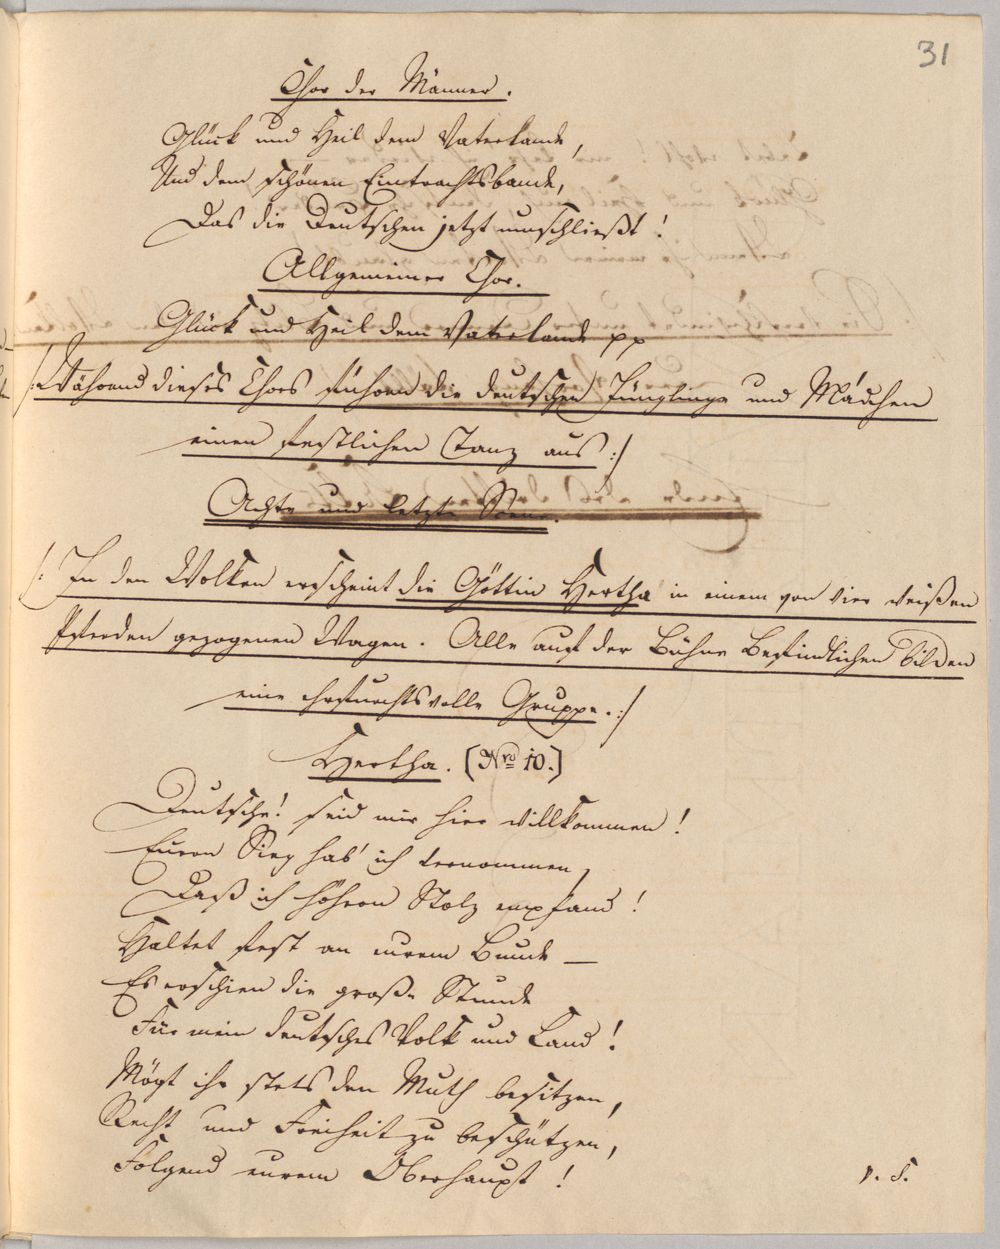 31
Chor der Männer.
Glück und Heil dem Vaterlande,
Und dem schönen Eintrachtsbande,
Das die Deutschen jetzt umschließt!
Allgemeiner Chor.
Glück und Heil dem Vaterlande pp
/: Während dieses Chors führen die deutschen Jünglinge und Mädchen
einen festlichen Tanz aus :/
Achte und letzte Scene.
/: In den Wolken erscheint die Göttin Hertha in einem von vier weißen
Pferden gezogenen Wagen. Alle auf der Bühne Befindlichen bilden
eine ehrfurchtsvolle Gruppe. :/
Hertha. [Nro 10.]
Deutsche! seid mir hier willkommen!
Euren Sieg hab' ich vernommen,
Daß ich höhern Stolz empfand!
Haltet fest an eurem Bunde —
Es erschien die große Stunde
Für mein deutsches Volk und Land!
Mögt ihr stets den Muth besitzen,
Recht und Freiheit zu beschützen,
Folgend eurem Oberhaupt!
v. S.